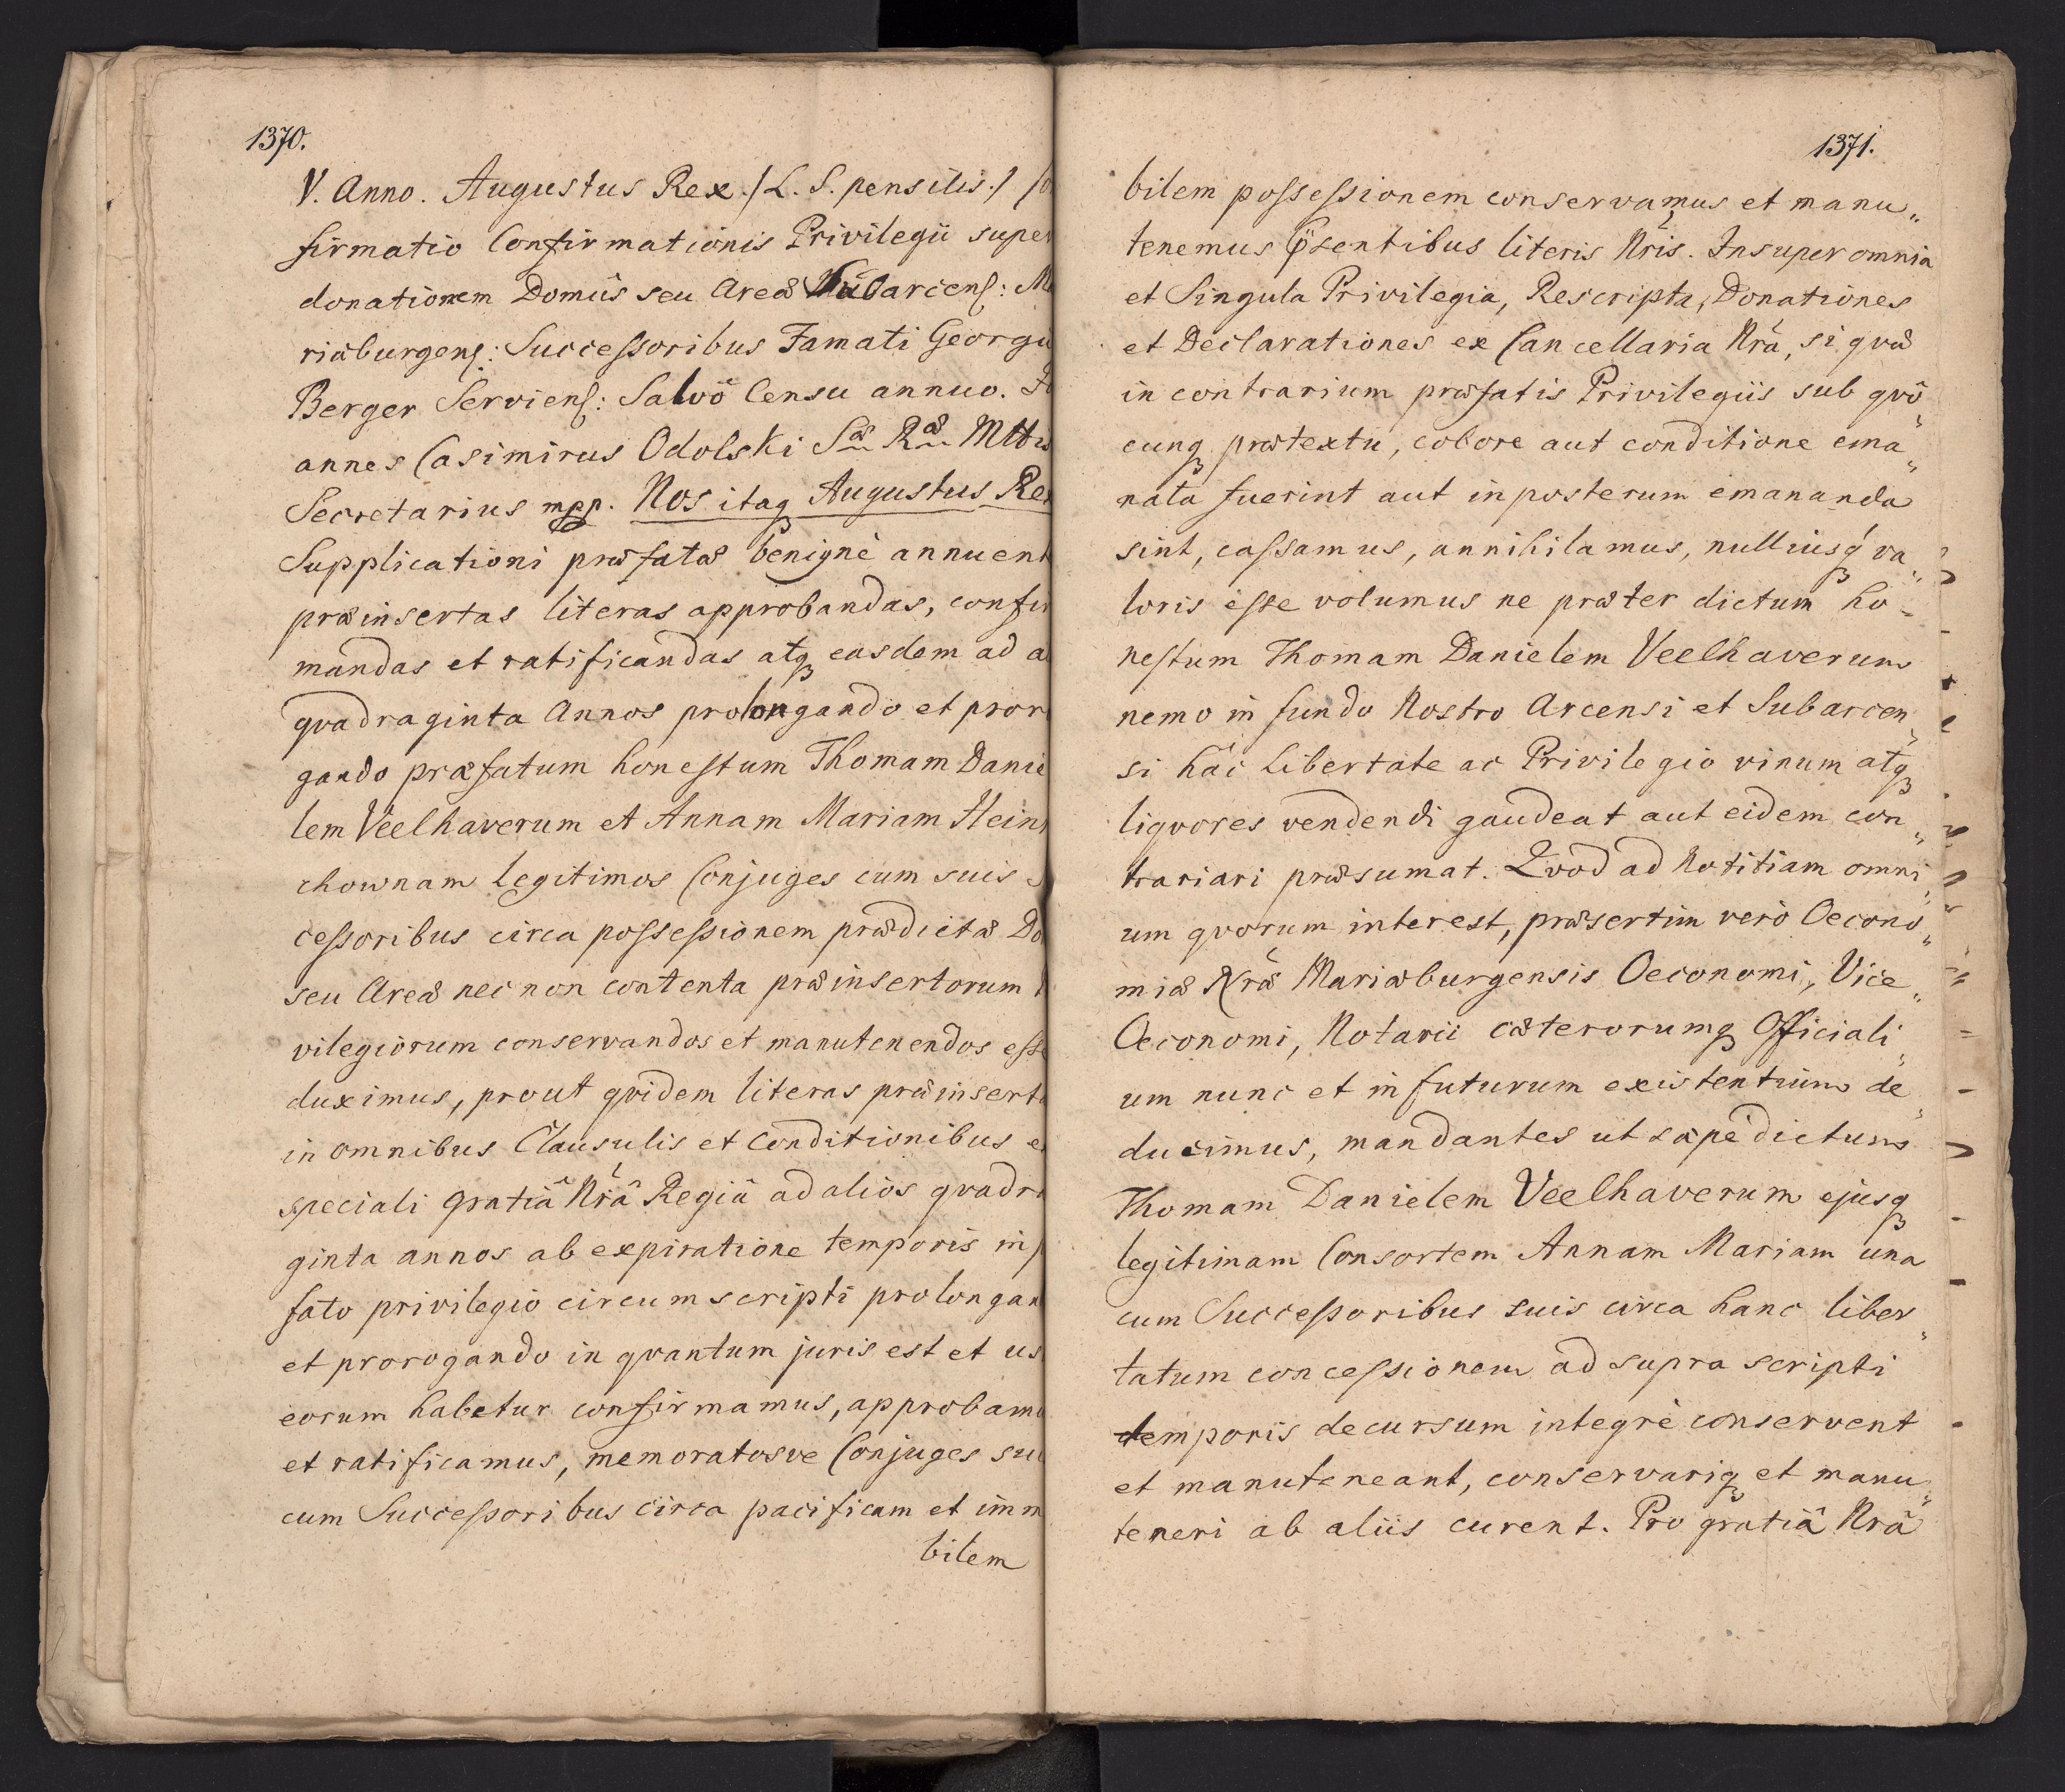 1370.
V. Anno. Augustus Rex. /L. S. pensilis./
firmatio Confirmationis Privilegii super
donationem Domûs seu Areæ Subarcens: Ma
riæburgens: Successoribus Famati Georgii
Berger Serviens: Salvô Censu annuo. Jo
annes Casimirus Odolski Sæ Ræ Mttis
Secretarius mpp. Nos itaq Augustus Rex
Supplicationi præfatæ benignè annuent
præinsertas literas approbandas, confir
mandas et ratificandas atq easdem ad a
qvadraginta Annos prolongando et proro
gando præfatum honestum Thomam Danie
lem Veelhaverum et Annam Mariam Hein
chownam legitimos Conjuges cum suis S
cessoribus circa possessionem prædictæ Do
seu Areæ nec non contenta præinsertorum
vilegiorum conservandos et manutenendos esse
duximus, prout qvidem literas præinserta
in omnibus Clausulis et Conditionibus e
speciali gratiâ Nrâ Regiâ ad alios qvadra
ginta annos ab expiratione temporis in p
fato privilegio circumscripti prolongan
et prorogando in qvantum juris est et us
eorum habetur confirmamus, approbamu
et ratificamus, memoratosve Conjuges suc
cum Successoribus circa pacificam et imm
bilem
1371.
bilem possessionem conservamus et manu„
tenemus pÿsentibus literis Nris. Insuper omnia
et Singula Privilegia, Rescripta, Donationes
et Declarationes ex Cancellaria Nrâ, si qvæ
in contrarium præfatis Privilegiis sub qvô„
cunq prætextu, colore aut conditione ema„
nata fuerint aut in posterum emananda
sint, cassamus, annihilamus, nulliusq va„
loris esse volumus ne præter dictum ho-
nestum Thomam Danielem Veelhaverum
nemo in fundo Nostro Arcensi et Subarcen„
si hâc Libertate ac Privilegio vinum atq
liqvores vendendi gaudeat aut eidem con„
trariari præsumat. Qvod ad Notitiam omni„
um qvorum interest, præsertim verò Oecono„
miæ Nræ Mariæburgensis Oeconomi, Vice„
Oeconomi, Notarii cæterorumq Officiali„
um nunc et in futurum existentium de„
ducimus, mandantes ut sæpè dictum
Thomam Danielem Veelhaverum ejusq
legitimam Consortem Annam Mariam una
cum Successoribus suis circa hanc liber„
tatum concessionem ad supra scripti
temporis decursum integrè conservent
et manuteneant, conservariq et manu„
teneri ab aliis curent. Pro gratiâ Nrâ